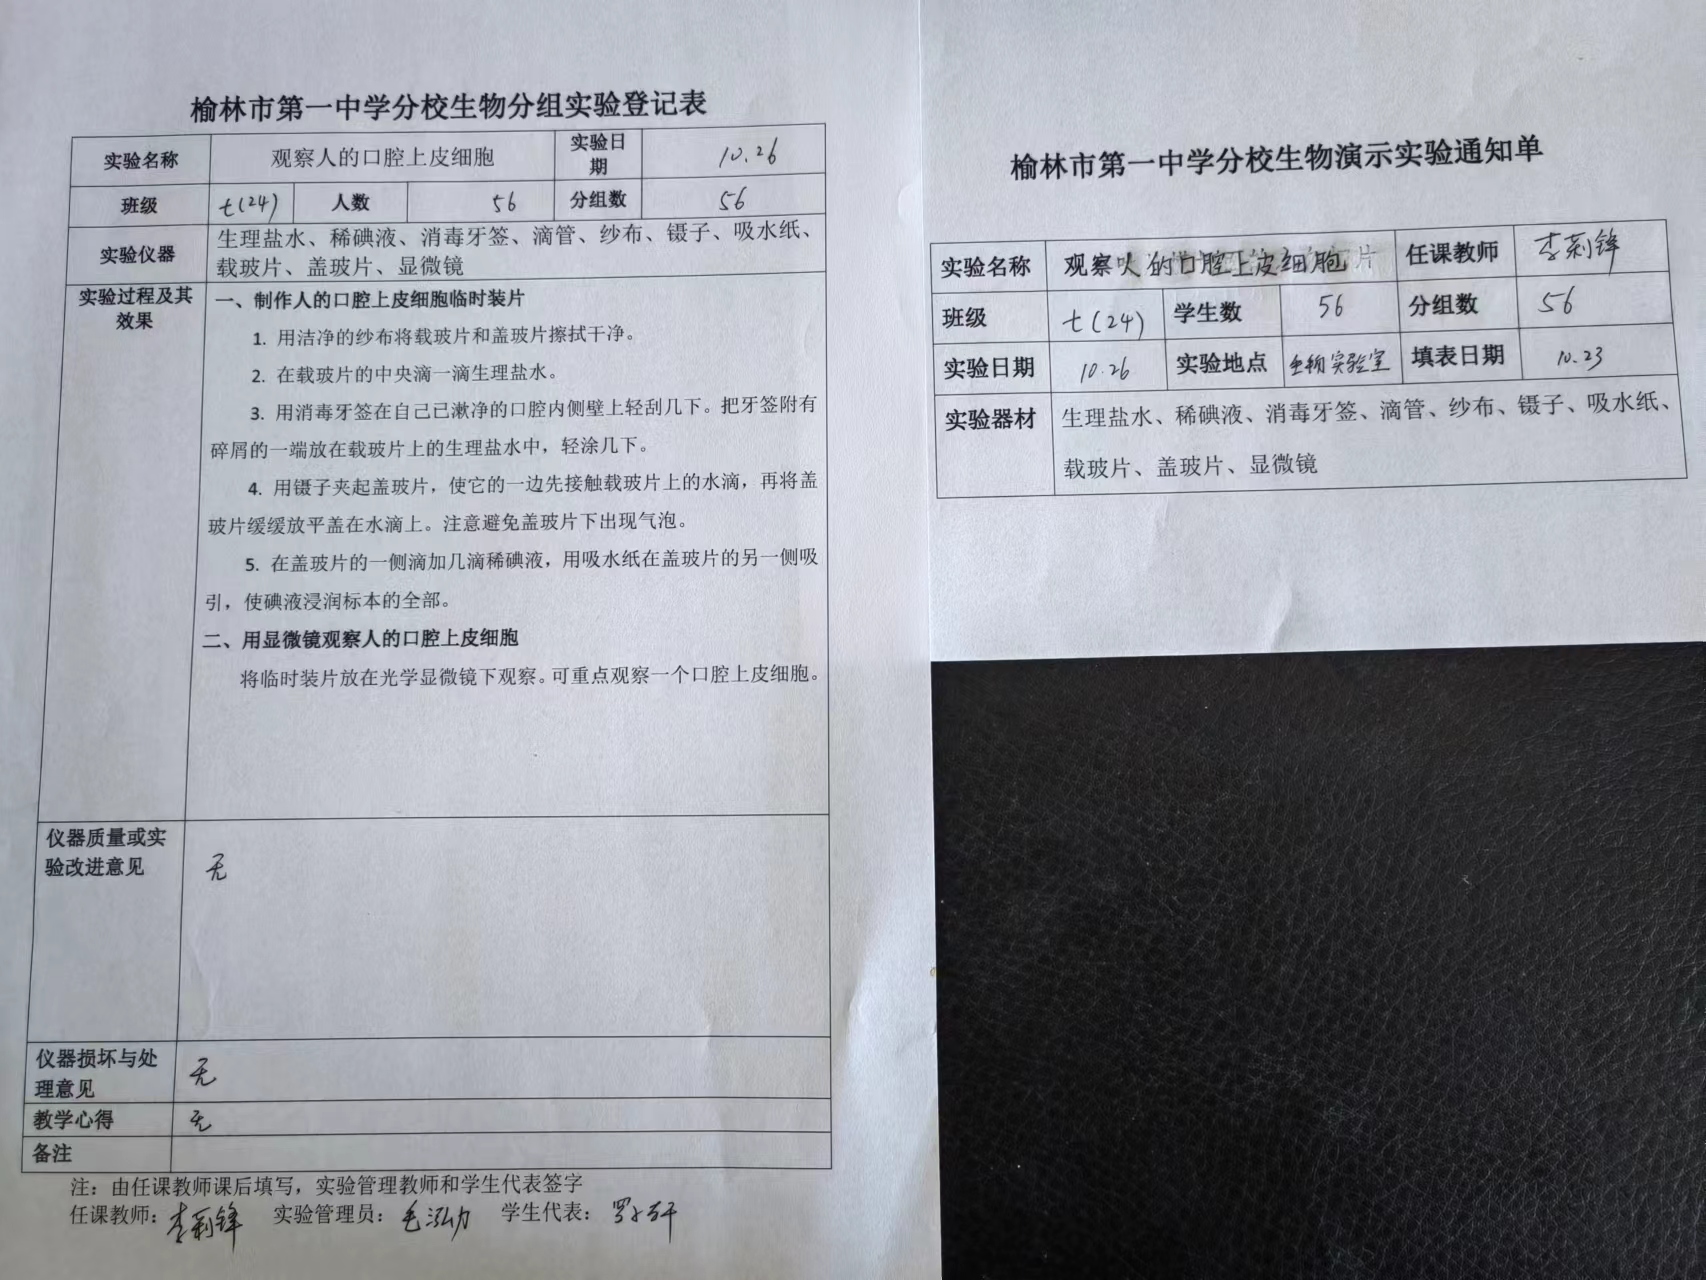 榆林市第一中学分校生物分组实验登记表
实验名称 观察人的口腔上皮细胞 实验日期 10.26
班级 七(24) 人数 56 分组数 56
实验仪器 生理盐水、稀碘液、消毒牙签、滴管、纱布、镊子、吸水纸、
载玻片、盖玻片、显微镜
实验过程及其
效果
一、制作人的口腔上皮细胞临时装片
1. 用洁净的纱布将载玻片和盖玻片擦拭干净。
2. 在载玻片的中央滴一滴生理盐水。
3. 用消毒牙签在自己已漱净的口腔内侧壁上轻刮几下。把牙签附有
碎屑的一端放在载玻片上的生理盐水中，轻涂几下。
4. 用镊子夹起盖玻片，使它的一边先接触载玻片上的水滴，再将盖
玻片缓缓放平盖在水滴上。注意避免盖玻片下出现气泡。
5. 在盖玻片的一侧滴加几滴稀碘液，用吸水纸在盖玻片的另一侧吸
引，使碘液浸润标本的全部。
二、用显微镜观察人的口腔上皮细胞
将临时装片放在光学显微镜下观察。可重点观察一个口腔上皮细胞。
仪器质量或实
验改进意见
无
仪器损坏与处
理意见
无
教学心得 无
备注
注：由任课教师课后填写，实验管理教师和学生代表签字
任课教师：李莉锋 实验管理员：毛泓力 学生代表：
榆林市第一中学分校生物演示实验通知单
实验名称 观察人的口腔上皮细胞 任课教师 李莉锋
班级 七(24) 学生数 56 分组数 56
实验日期 10.26 实验地点 生物实验室 填表日期 10.23
实验器材 生理盐水、稀碘液、消毒牙签、滴管、纱布、镊子、吸水纸、
载玻片、盖玻片、显微镜